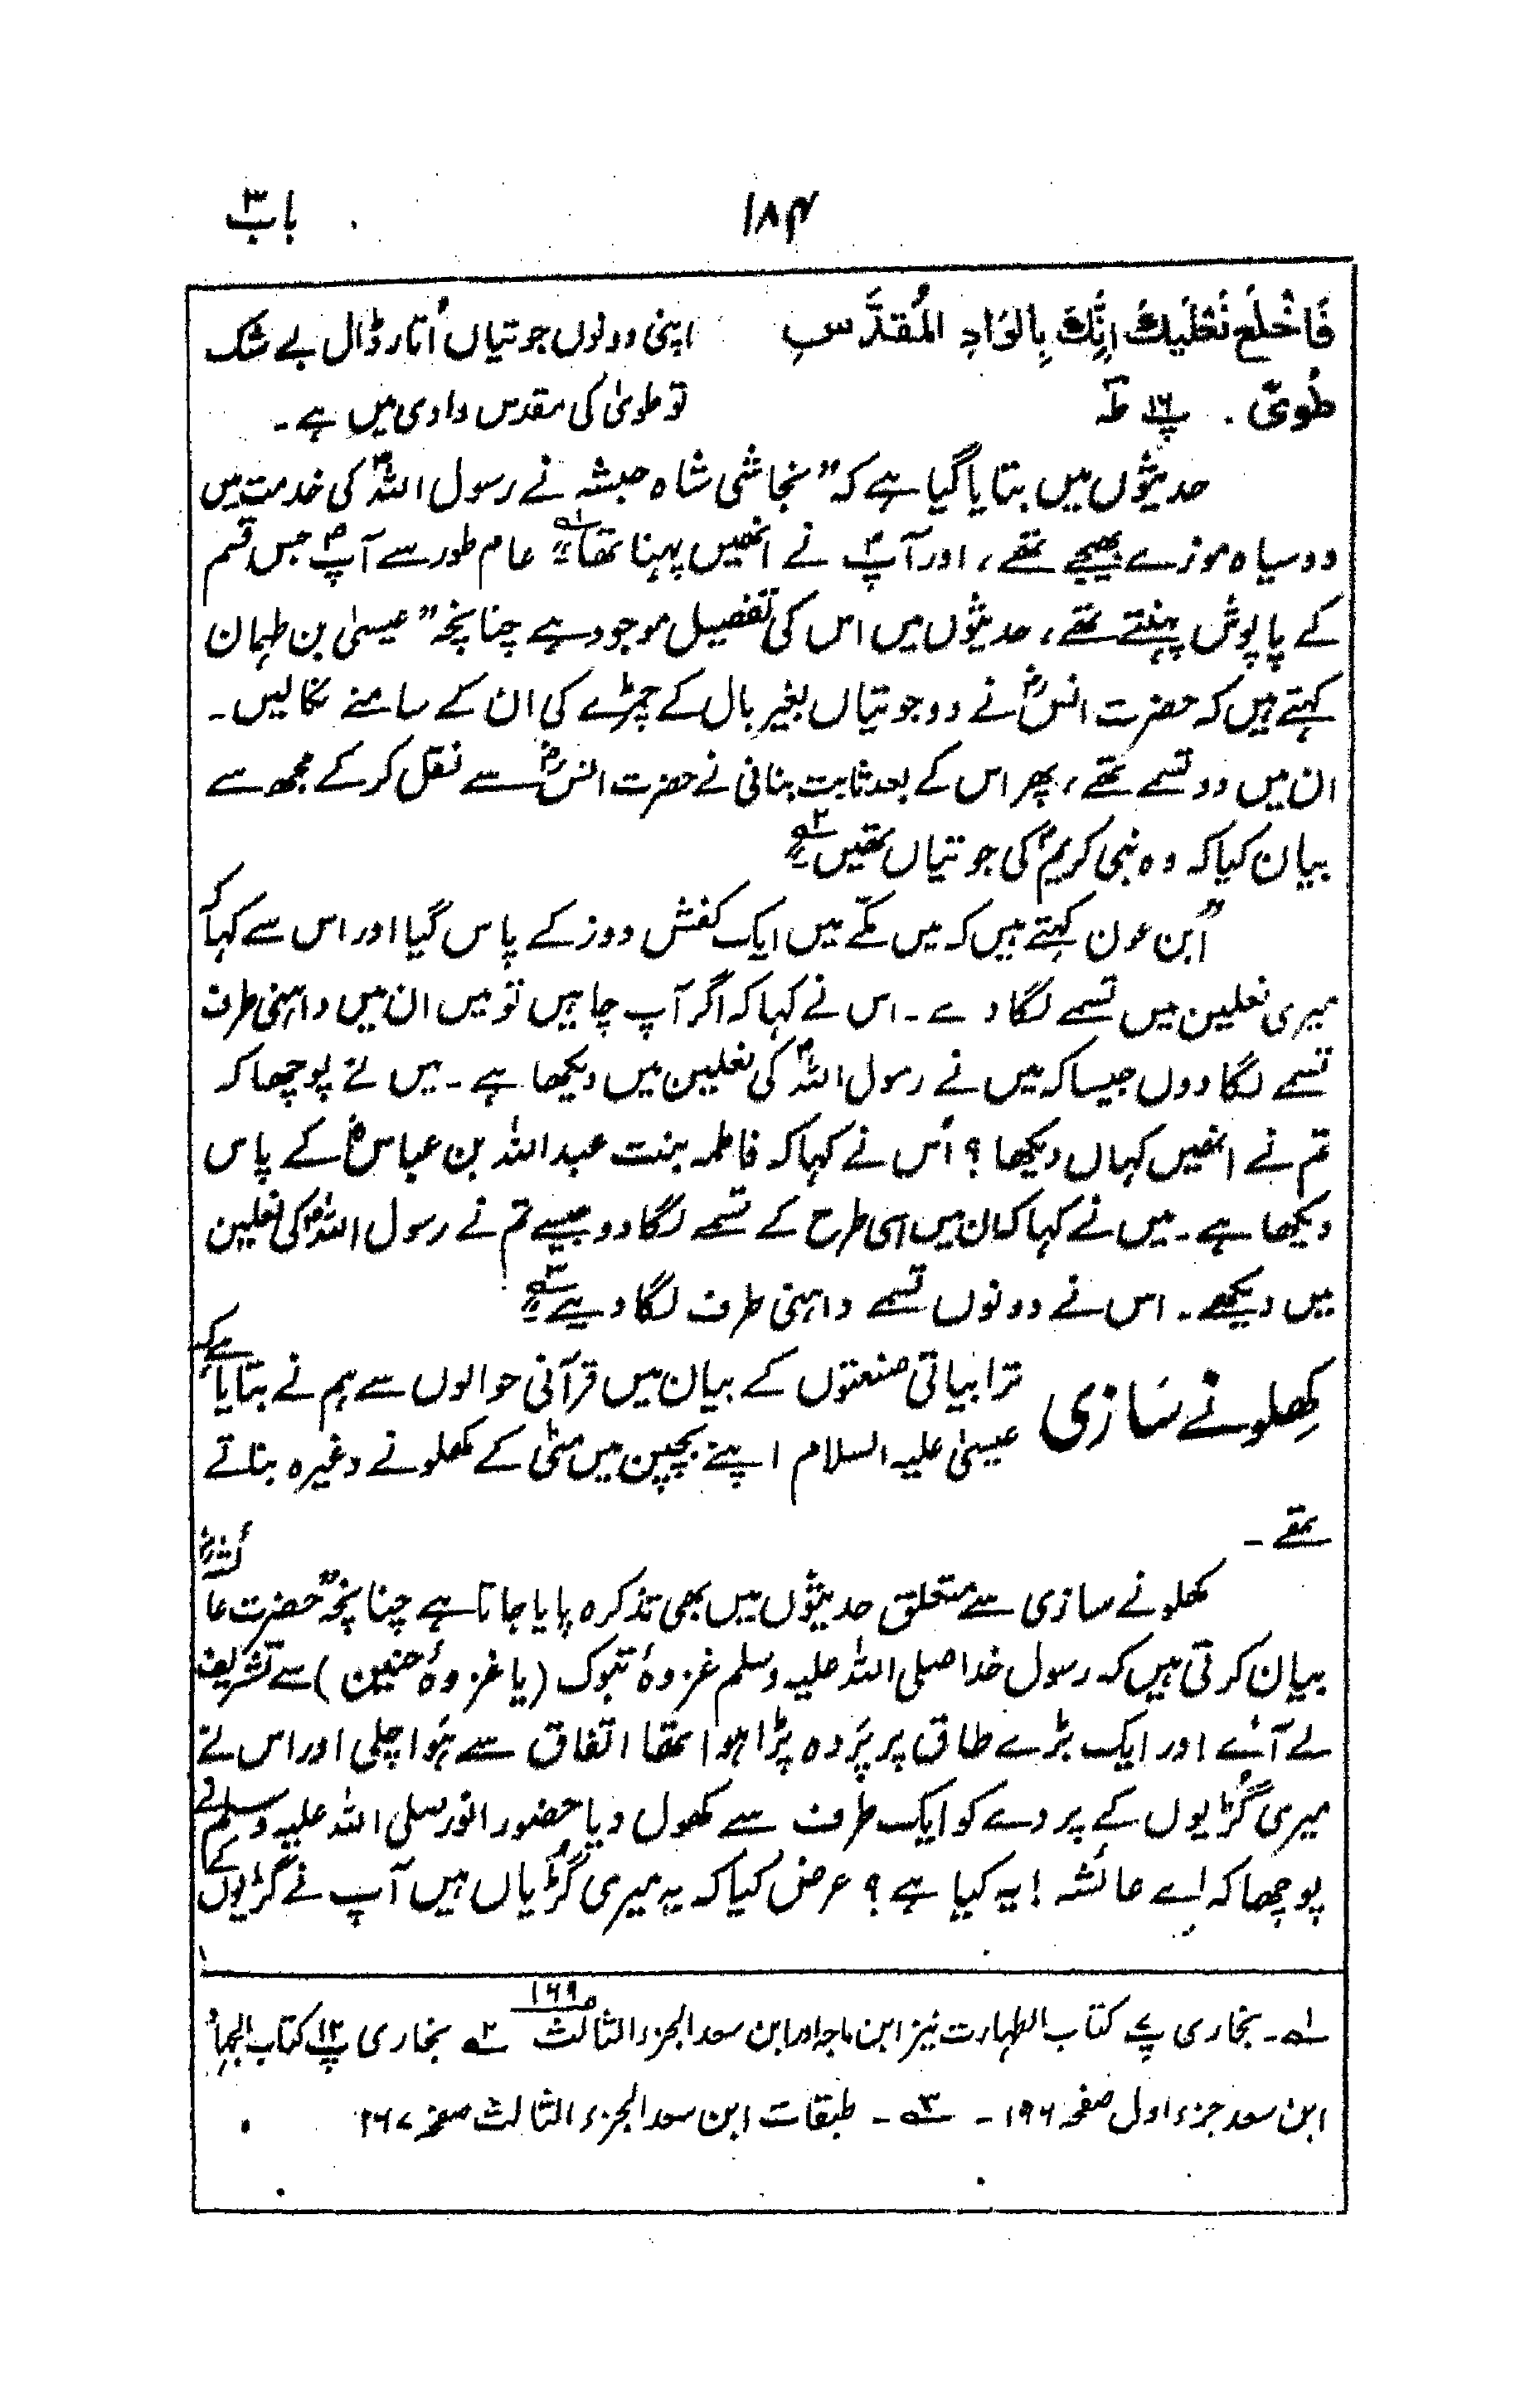 باب ۳
۱۸۴
فَاخْلَعْ نَعْلَيْكَ اِنَّكَ بِالْوَادِ الْمُقَدَّسِ اپنی دونوں جوتیاں اُتار ڈال بے شک
طُوًى . پ ۱۶ طٰہٰ تو طویٰ کی مقدس وادی میں ہے ۔
حدیثوں میں بتایا گیا ہے کہ ” نجاشی شاہ حبشہ نے رسول اللہؐ کی خدمت میں
دو سیاہ موزے بھیجے تھے ، اور آپؐ نے انھیں پہنا تھا“ ۱ عام طور سے آپؐ جس قسم
کے پاپوش پہنتے تھے ، حدیثوں میں اس کی تفصیل موجود ہے چنانچہ ” عیسیٰ بن طہمان
کہتے ہیں کہ حضرت انسؓ نے دو جوتیاں بغیر بال کے چمڑے کی ان کے سامنے نکالیں ۔
ان میں دو تسمے تھے ، پھر اس کے بعد ثابت بنانی نے حضرت انسؓ سے نقل کر کے مجھ سے
بیان کیا کہ وہ نبی کریمؐ کی جوتیاں تھیں“ ۲
”ابن عون کہتے ہیں کہ میں مکّے میں ایک کفش دوز کے پاس گیا اور اس سے کہا کہ
میری نعلین میں تسمے لگا دے ۔ اس نے کہا کہ اگر آپ چاہیں تو میں ان میں داہنی طرف
تسمے لگا دوں جیسا کہ میں نے رسول اللہؐ کی نعلین میں دیکھا ہے ۔ میں نے پوچھا کہ
تم نے انھیں کہاں دیکھا ؟ اُس نے کہا کہ فاطمہ بنت عبد اللہ بن عباسؓ کے پاس
دیکھا ہے ۔ میں نے کہا کہ ان میں اسی طرح کے تسمے لگا دو جیسے تم نے رسول اللہؐ کی نعلین
میں دیکھے ۔ اس نے دونوں تسمے داہنی طرف لگا دیے“ ۳
کھلونے سازی ترابیاتی صنعتوں کے بیان میں قرآنی حوالوں سے ہم نے بتایا ہے کہ
عیسیٰ علیہ السلام اپنے بچپن میں مٹی کے کھلونے وغیرہ بناتے
تھے ۔
کھلونے سازی سے متعلق حدیثوں میں بھی تذکرہ پایا جاتا ہے چنانچہ ”حضرت عائشہؓ
بیان کرتی ہیں کہ رسول خدا صلی اللہ علیہ وسلم غزوۂ تبوک (یا غزوۂ حنین) سے تشریف
لے آئے اور ایک بڑے طاق پر پَردہ پڑا ہوا تھا اتفاق سے ہَوا چلی اور اس نے
میری گُڑیوں کے پردے کو ایک طرف سے کھول دیا حضور انور صلی اللہ علیہ وسلم نے
پوچھا کہ اے عائشہ ! یہ کیا ہے ؟ عرض کیا کہ یہ میری گُڑیاں ہیں آپ نے گڑیوں کے
۱ ۔ بخاری پ ۷ کتاب الطہارت نیز ابن ماجہ اور ابن سعد الجزء الثالث ص ۱۶۹ ۲ بخاری پ ۱۲ کتاب الجہاد
ابن سعد جزء اول صفحہ ۱۹۶ ۔ ۳ ۔ طبقات ابن سعد الجزء الثالث صفحہ ۱۶۷